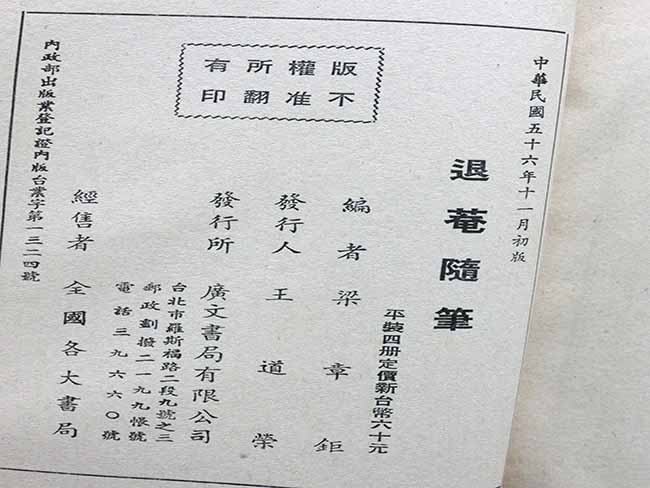 中華民國五十六年十一月初版
退菴隨筆
平裝四册定價新台幣六十元
編者梁章鉅
發行人王道榮
發行所廣文書局有限公司
台北市羅斯福路二段九號之三
郵政劃撥二一九九帳號
電話三九六六〇號
經售者全國各大書局
內政部出版業登記證內版台業字第一三二四號
版權所有
不准翻印